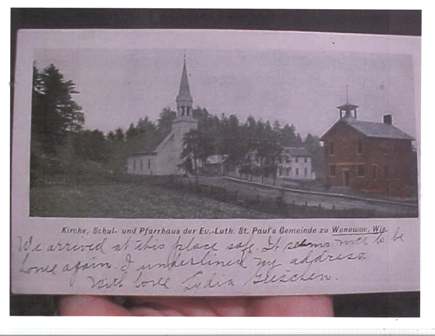 Kirche, Schul- und Pfarrhaus der Ev.-Luth. St. Paul's Gemeinde zu Wonewoc, Wis.
We arrived at this place safe. It seems nice to be
home again. I underlined my address
With love Lydia